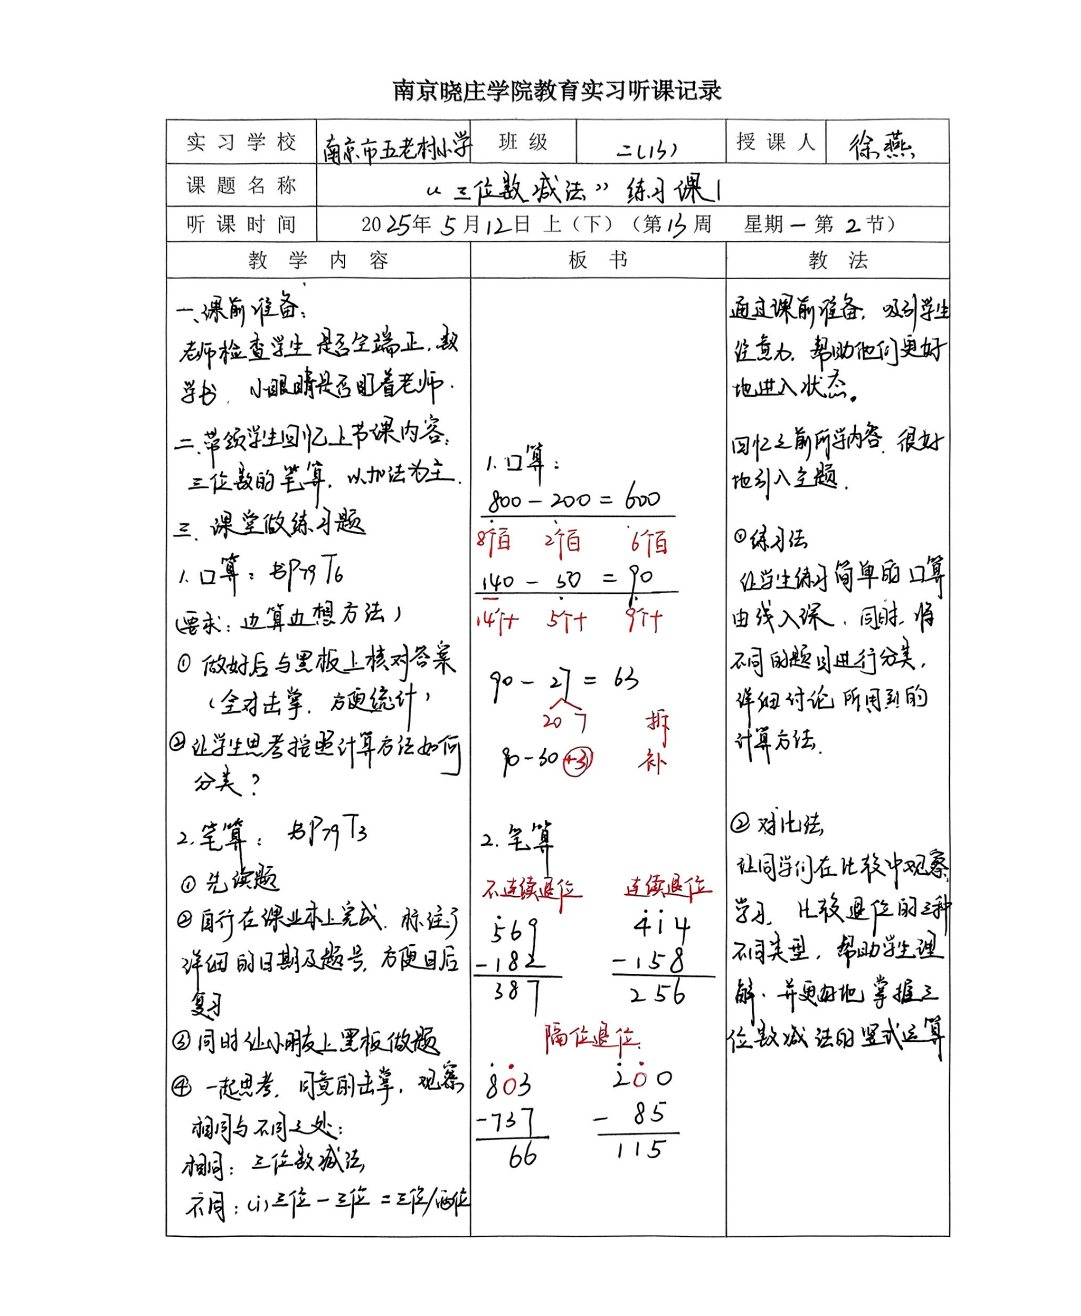 南京晓庄学院教育实习听课记录
实习学校 南京市五老村小学 班级 二(13) 授课人 徐燕
课题名称 “三位数减法”练习课1
听课时间 2025年5月12日上(下)(第13周 星期一第2节)
教学内容 板书 教法
一、课前准备:
老师检查学生是否坐端正,数
学书,小眼睛是否盯着老师.
二、带领学生回忆上节课内容:
三位数的笔算,以加法为主.
三、课堂做练习题
1.口算:书P79 T6
(要求:边算边想方法)
① 做好后与黑板上核对答案
(全对击掌,方便统计)
②让学生思考按照计算方法如何
分类?
2.笔算:书P79 T3
①先读题
②自行在课业本上完成,标注了
详细的日期及题号,方便日后
复习
③同时让小朋友上黑板做题
④一起思考,同意的击掌,观察
相同与不同之处:
相同:三位数减法
不同:(1)三位-三位=三位/两位
1.口算:
800-200=600
8个百 2个百 6个百
140-50=90
14个十 5个十 9个十
90-27=63
20 7 拆
90-30+3 补
2.笔算
不连续退位 连续退位
569 414
-182 -158
387 256
隔位退位:
803 200
-737 -85
66 115
通过课前准备,吸引学生
注意力,帮助他们更好
地进入状态。
回忆之前所学内容,很好
地引入主题.
①练习法
让学生练习简单的口算
由浅入深,同时,将
不同的题目进行分类,
详细讨论所用到的
计算方法.
②对比法
让同学们在比较中观察,
学习,比较退位的三种
不同类型,帮助学生理
解,并更好地掌握三
位数减法的竖式运算